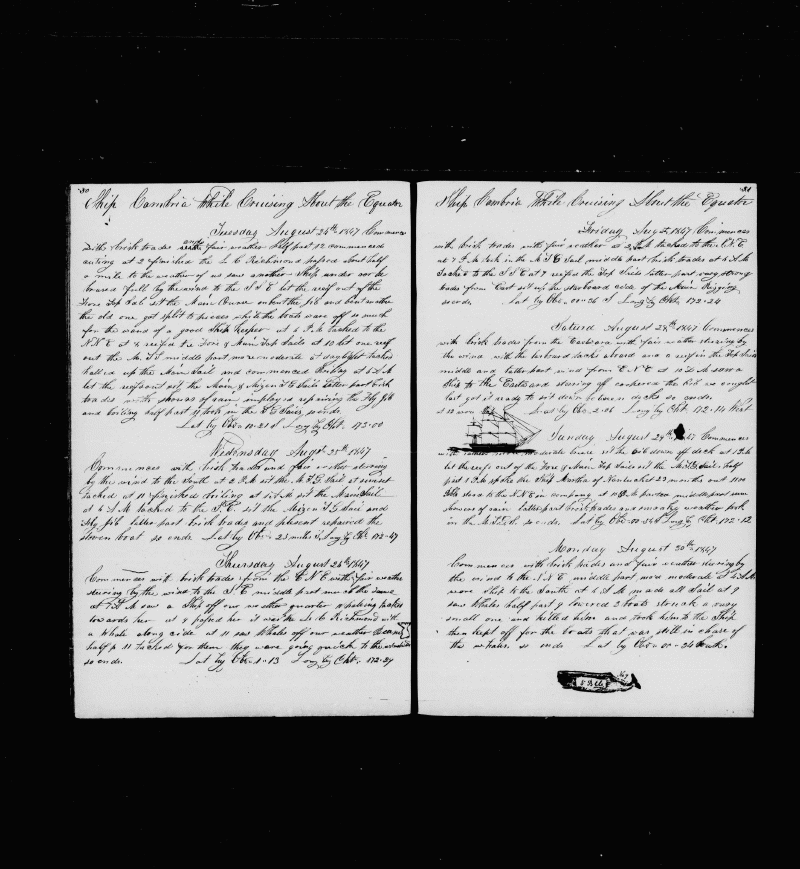 80
Ship Cambria While Cruising About the Equator
Tuesday August 24th 1847 Commences
with brisk trades and fair weather half past 12 commenced
cuting at 2 finished the L C Richmond passed about half
a mile to the weather of us saw another Ship under our lee
braced full by the wind to the SSE let the reef out of the
Fore Top Sail sit the Main bent the jib and bent another
the old one got split to pieces while the boats were off so much
for the want of a good Ship keeper at 6 P.M tacked to the
NNE at 8 reefed the Fore & Main Top Sails at 10 let one reef
out the M.T.S middle part more moderate at daylight tacked
halled up the Main Sail and commenced boiling at 6 A.M
let the reefs out sit the Main & Mizen T G Sails latter part brisk
trades with showers of rain employed repairing the Fly jib
and boiling half part 9 took in the T G Sails so ends
Lat by Obs 10-21 S Long by Cht. 173-00
Wednesday Augst 25th 1847
Commences with brisk trades and fair weather steering
by the wind to the South at 2 P.M sit the M.T.G. Sail at sunset
tacked at 11 finished boiling at 4 A.M sit the Main Sail
at 6 A.M tacked to the S.E sit the Mizen T G Sail and
Fly jib latter part brisk trades and pleasant repaired the
boat so ends Lat by Obs 23 miles S Long by Cht. 172-47
Thursday August 26th 1847
Commences with brisk trades from the E N E with fair weather
steering by the wind to the S E middle part
at 7 A.M saw a Ship off our weather quarter
towards her at 9 passed her it was the L C Richmond with
a Whale along side at 11 saw Whales off our weather Beam
half p 11 tacked for them they were going quick to the
so ends. Lat by Obs 1-13 Long by Cht. 172-27
81
Ship Cambria While Cruising About the Equator
Friday Augst 1847 Commences
with brisk trades with fair weather at 2 P.M tacked to the N.N.E
at 7 P.M took in the M T G Sail middle part brisk trades at 4 A.M
tacked to the SSE at 7 reefed the Top Sails latter part very strong
trades from East sit up the starboard side of the Main Rigging
so ends. Lat by Obs 00-26 S Long by Cht. 172-24
Saturd August 28th 1847 Commences
with brisk trades from the Eastward with fair weather steering by
the wind with the larboard tacks aboard and a reef in the Top Sails
middle and latter part wind from E N E at 10 A.M saw a
Ship to the Eastward steering off coopered the oil we caught
last got it ready to stow down between decks so ends
at 12 Lat by Obs 2-06 Long by Cht. 172-14 West
Sunday August 29th 1847 Commences
with moderate breeze sit the oil down off deck at 1 P.M
let the reefs out of the Fore & Main Top Sails sit the M.T.G. Sail half
past 1 P.M spoke the Ship Martha of Nantucket 23 months out 1100
Bbls stood to the N N E in company at 10 P.M parted middle part some
showers of rain latter part brisk trades and smoaky weather
in the so ends Lat by Obs 00-34 S Long by Cht. 172-12
Monday August 30th 1847
Commences with brisk trades and fair weather steering by
the wind to the N N E middle part more moderate at 4 A.M
wore Ship to the South at 6 A.M made all Sail at 9
saw Whales half past 9 lowered 3 boats struck a very
small one and killed him and took him to the Ship
then kept off for the boats that was still in chase of
the whales so ends Lat by Obs 00-24 South.
5 Bbls